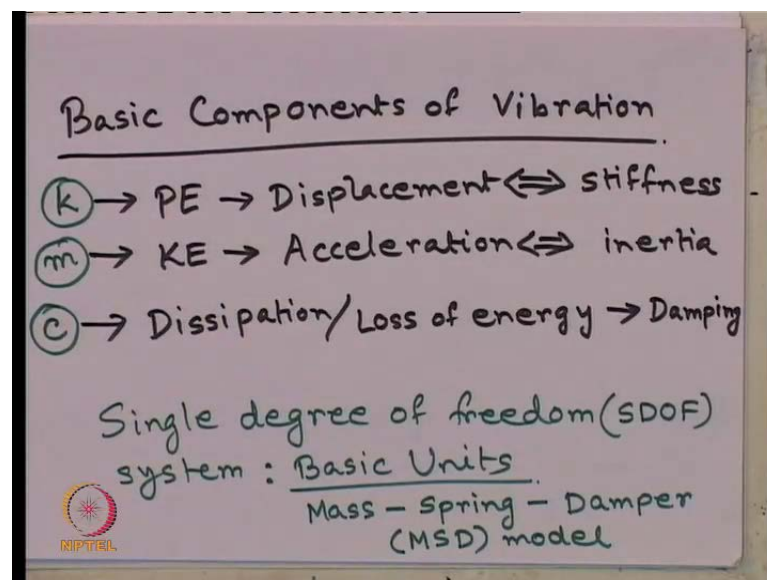 Basic Components of Vibration
k → PE → Displacement ⇔ stiffness
m → KE → Acceleration ⇔ inertia
c → Dissipation/Loss of energy → Damping
Single degree of freedom (SDOF)
system : Basic Units
Mass – Spring – Damper
(MSD) model
NPTEL